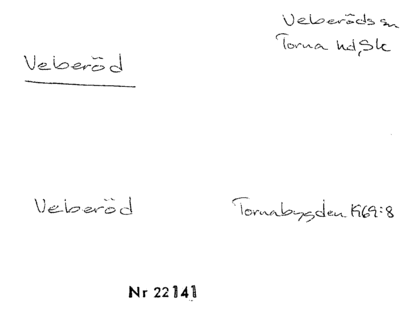 Veberöds sn
Torna hd, Sk
Veberöd
Veberöd
Tornabygden 1969:8
Nr 22141